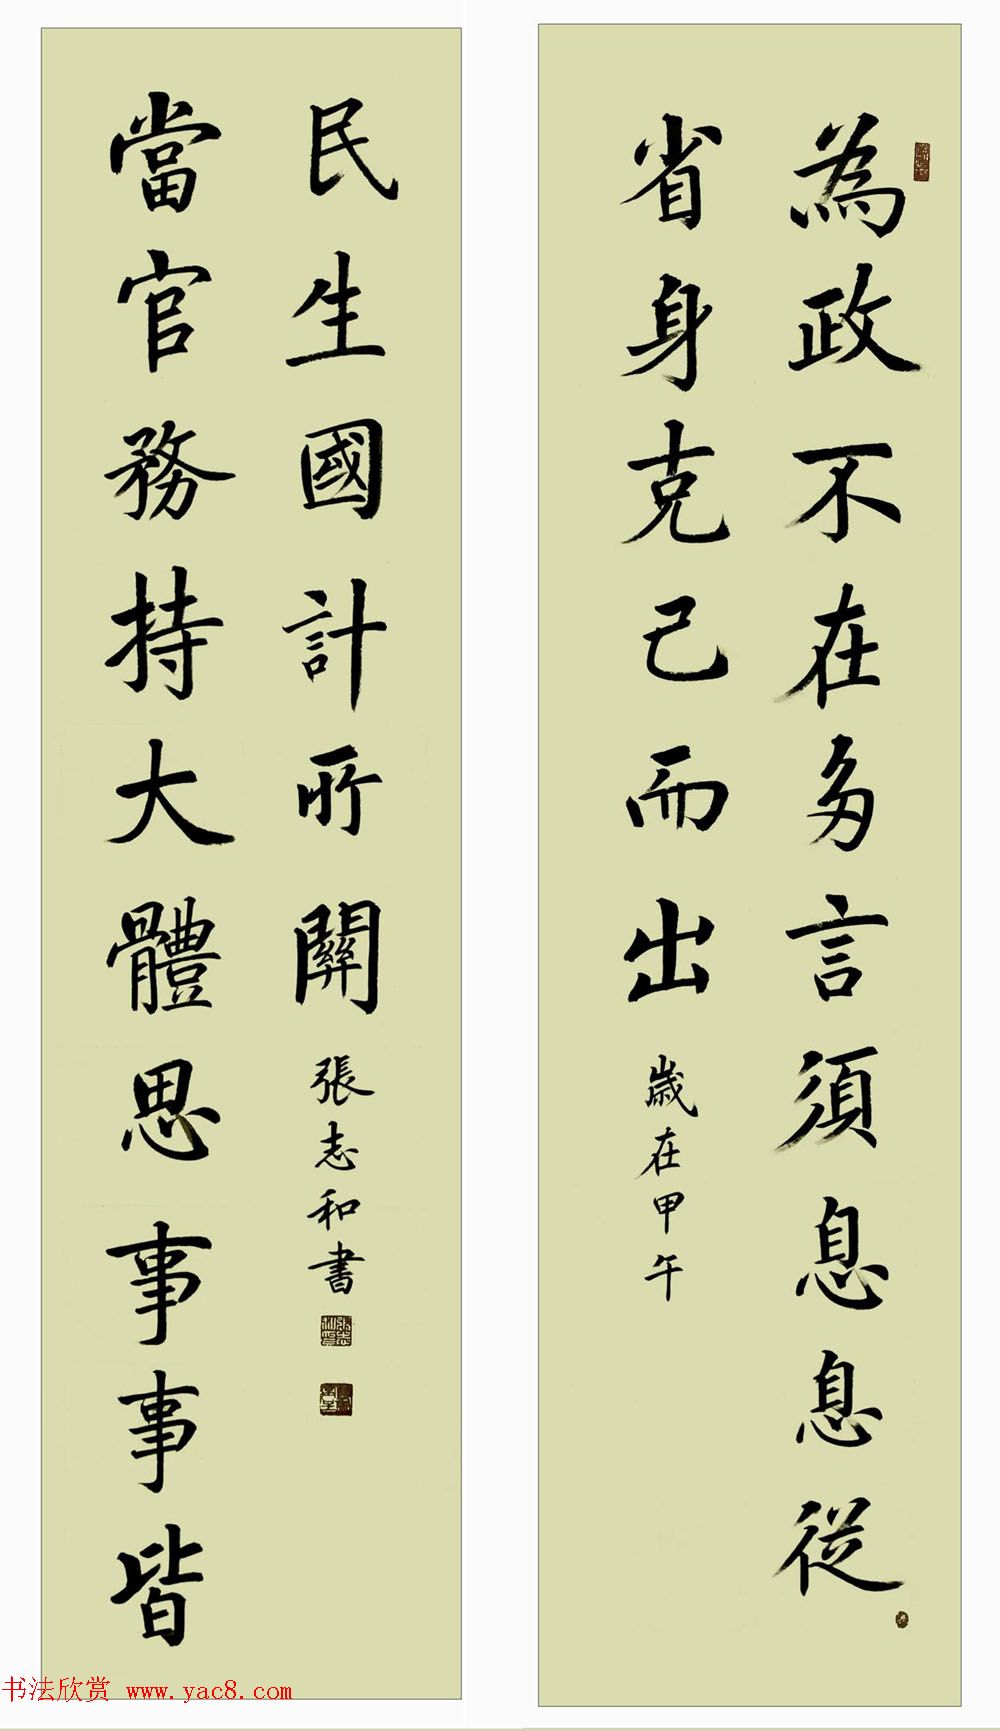 為政不在多言須息息從
省身克己而出
歲在甲午
當官務持大體思事事皆
民生國計所關
張志和書
书法欣赏 www.yac8.com